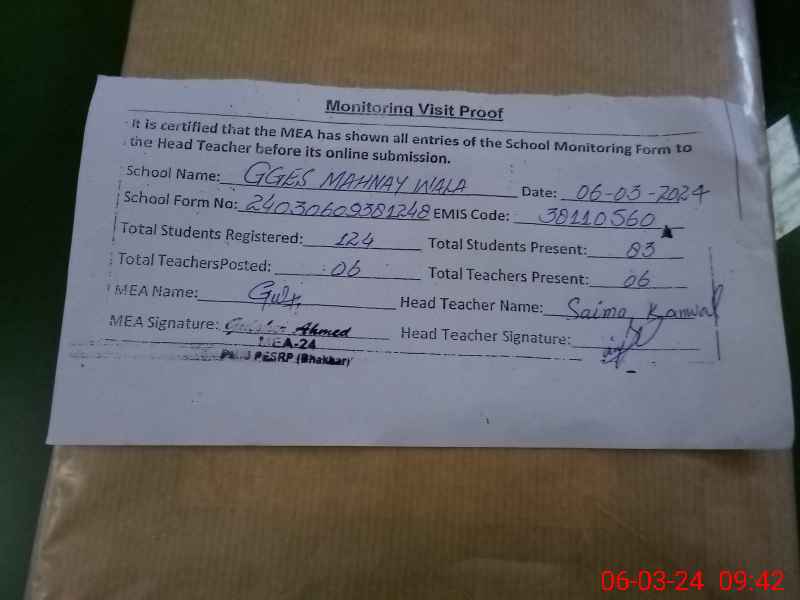 Monitoring Visit Proof
It is certified that the MEA has shown all entries of the School Monitoring Form to
the Head Teacher before its online submission.
School Name: GGES MAHNAY WALA Date: 06-03-2024
School Form No: 24030609381248 EMIS Code: 38110560
Total Students Registered: 124 Total Students Present: 83
Total TeachersPosted: 06 Total Teachers Present: 06
MEA Name: Head Teacher Name: Saima Kanwal
MEA Signature: Ahmed Head Teacher Signature:
MEA-24
PESRP (Bhakkar)
06-03-24 09:42